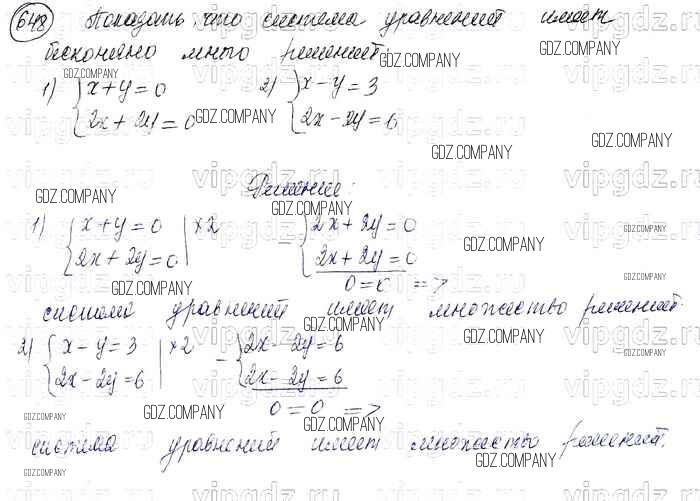 648 Показать, что система уравнений имеет
бесконечно много решений:
1) { x + y = 0 2) { x − y = 3
2x + 2y = 0 2x − 2y = 6
Решение:
1) { x + y = 0 | ×2 − { 2x + 2y = 0
2x + 2y = 0 2x + 2y = 0
0 = 0 =>
система уравнений имеет множество решений.
2) { x − y = 3 | ×2 − { 2x − 2y = 6
2x − 2y = 6 2x − 2y = 6
0 = 0 =>
система уравнений имеет множество решений.
GDZ.COMPANY
vipgdz.ru